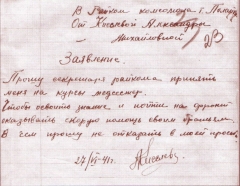 В Райком комсомола г.
От Киселевой Александры
Михайловной
Заявление.
Прошу секретаря райкома принять
меня на курсы медсестер.
Чтобы освоить знание и пойти на фронт
оказывать скорую помощь своим братьям.
В чем прошу не отказать в моей просьбе.
27/VI-41г.